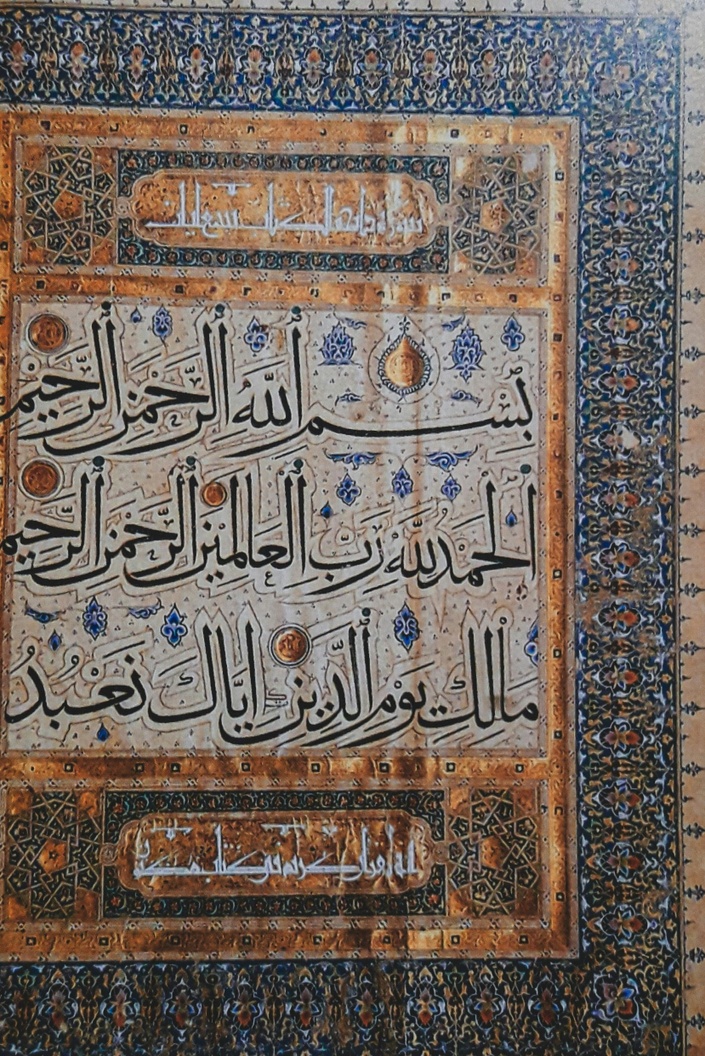 سورة فاتحة الكتاب سبع ايات
بِسْمِ اللَّهِ الرَّحْمٰنِ الرَّحِيمِ
الْحَمْدُ لِلَّهِ رَبِّ الْعَالَمِينَ الرَّحْمٰنِ الرَّحِيمِ
مَالِكِ يَوْمِ الدِّينِ اِيَّاكَ نَعْبُدُ
انه لقران كريم في كتاب مكنون